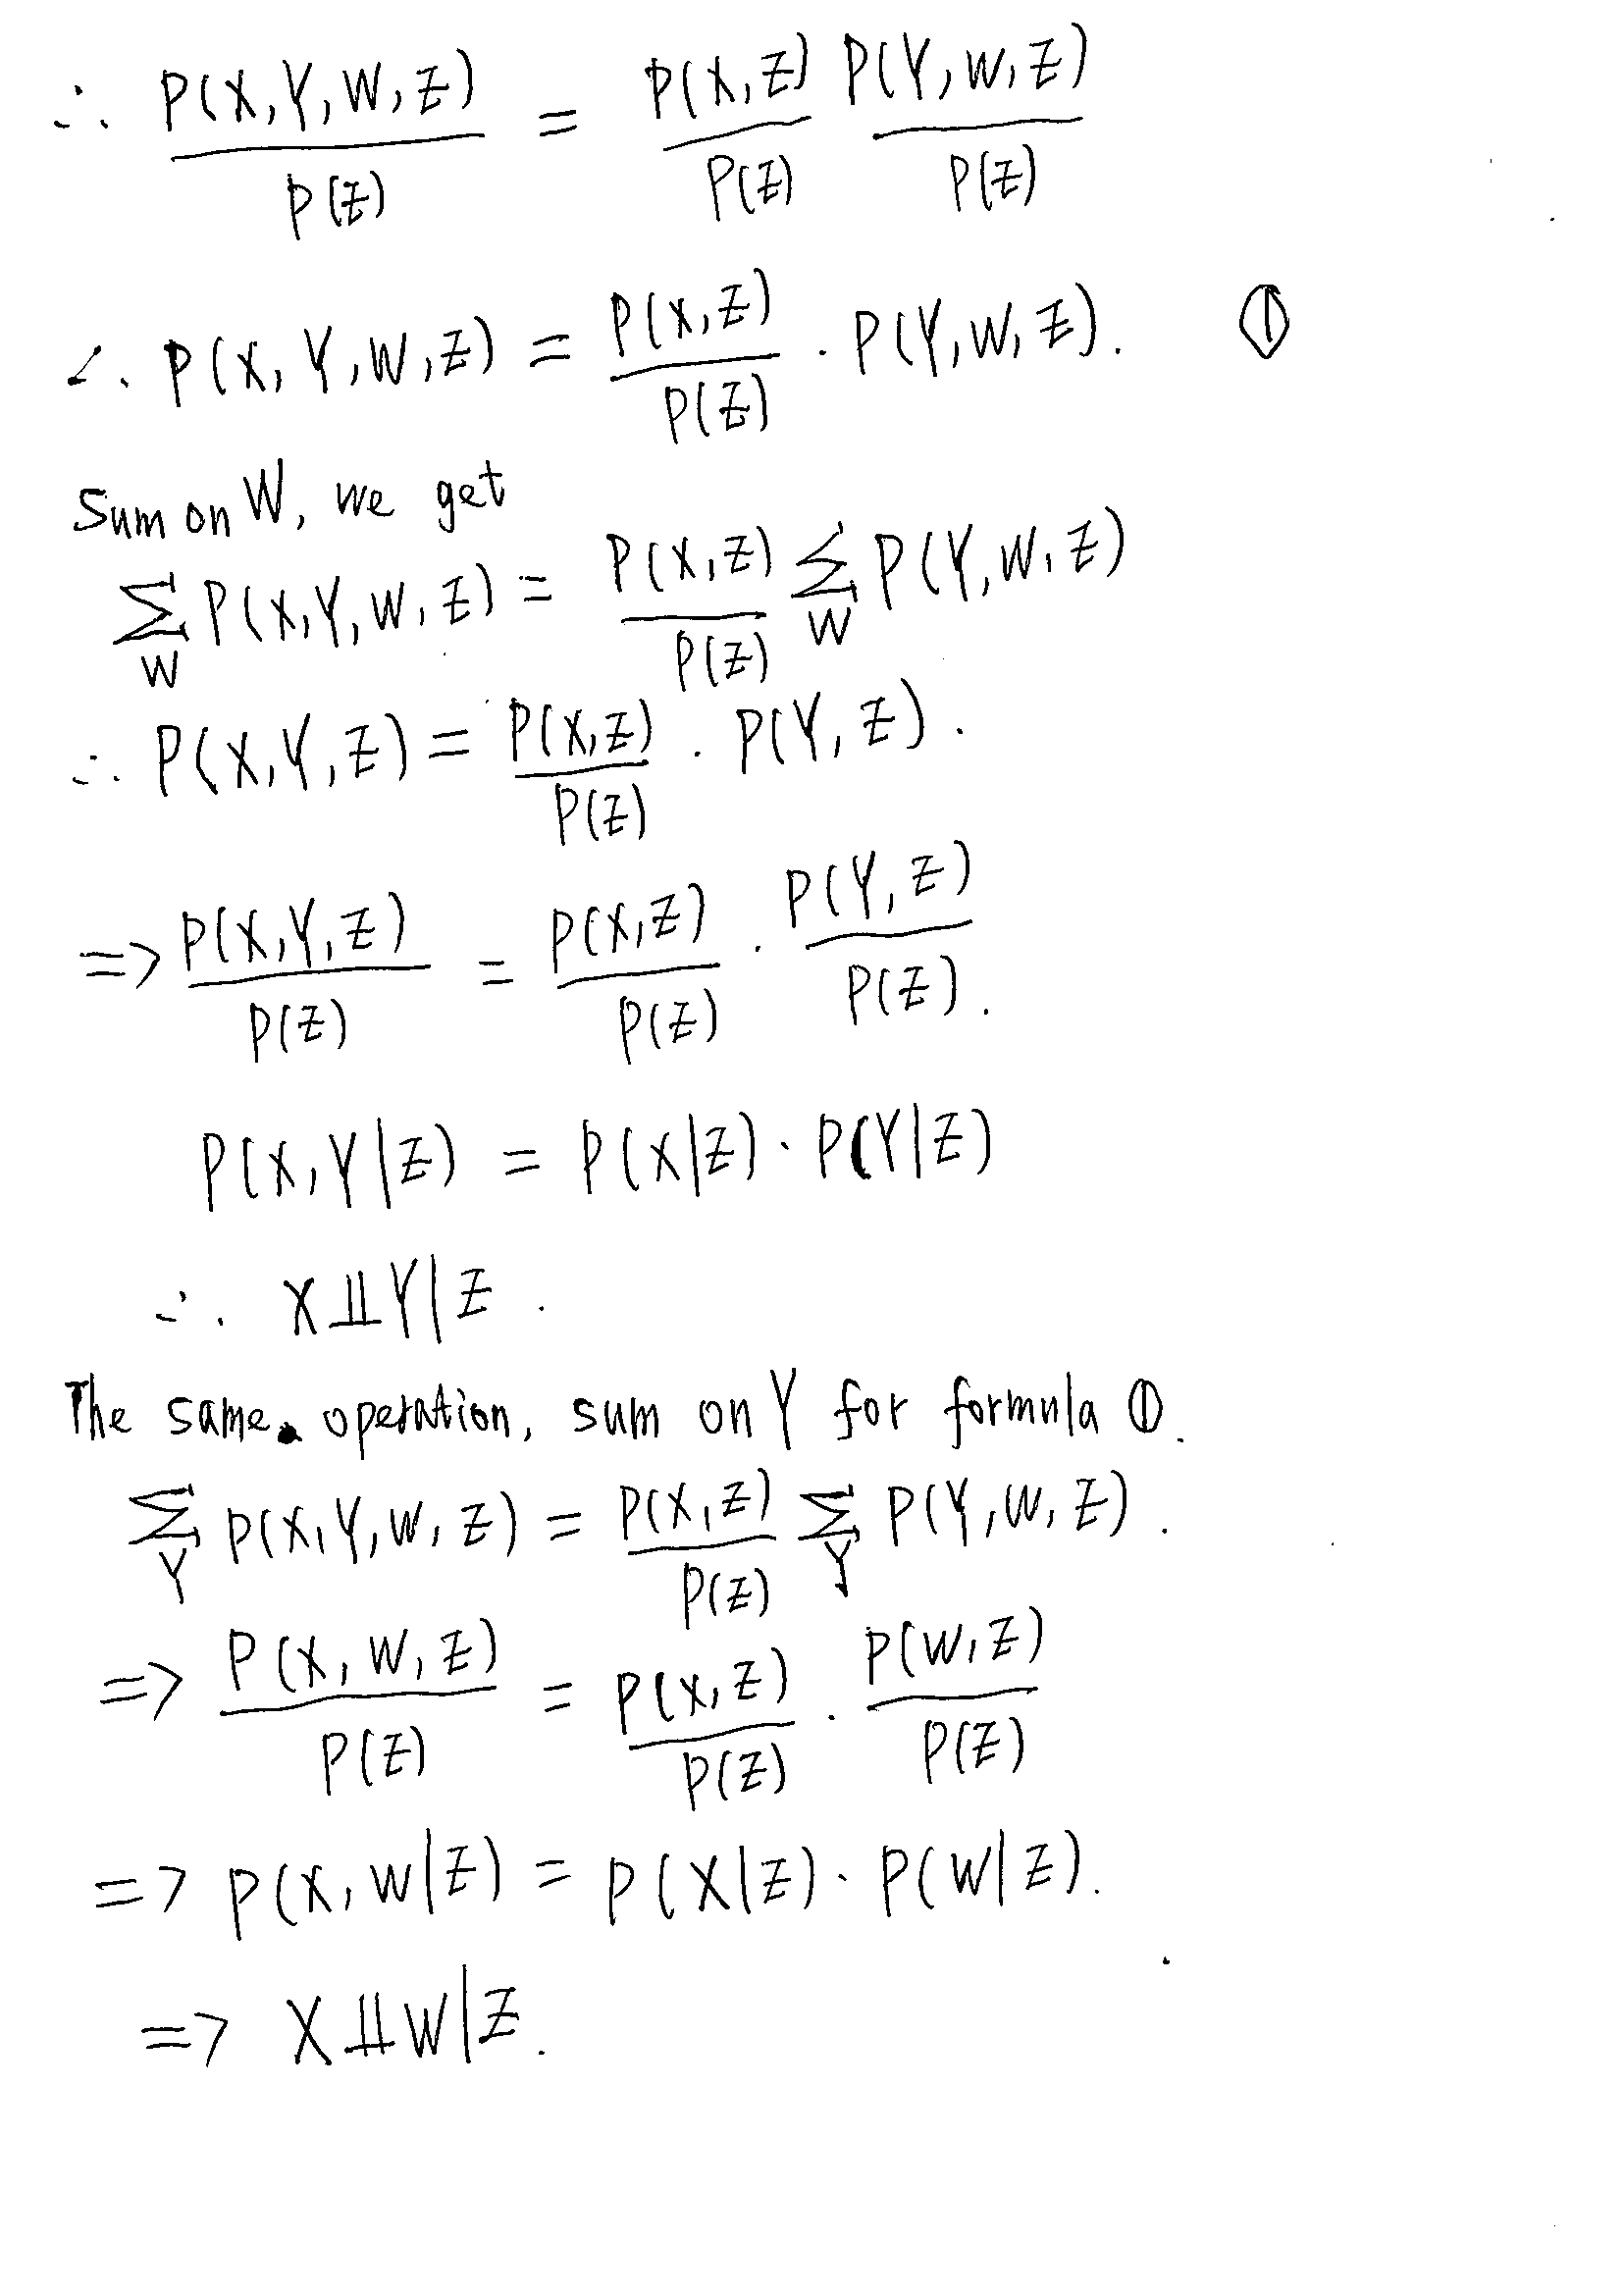 ∴ P(X,Y,W,Z) / P(Z) = P(X,Z) / P(Z) P(Y,W,Z) / P(Z)
∴ P(X,Y,W,Z) = P(X,Z) / P(Z) · P(Y,W,Z). ①
Sum on W, we get
∑_W P(X,Y,W,Z) = P(X,Z) / P(Z) ∑_W P(Y,W,Z)
∴ P(X,Y,Z) = P(X,Z) / P(Z) · P(Y,Z).
=> P(X,Y,Z) / P(Z) = P(X,Z) / P(Z) · P(Y,Z) / P(Z).
P(X,Y|Z) = P(X|Z) · P(Y|Z)
∴ X⫫Y|Z.
The same operation, sum on Y for formula ①.
∑_Y P(X,Y,W,Z) = P(X,Z) / P(Z) ∑_Y P(Y,W,Z).
=> P(X,W,Z) / P(Z) = P(X,Z) / P(Z) · P(W,Z) / P(Z)
=> P(X,W|Z) = P(X|Z) · P(W|Z).
=> X⫫W|Z.